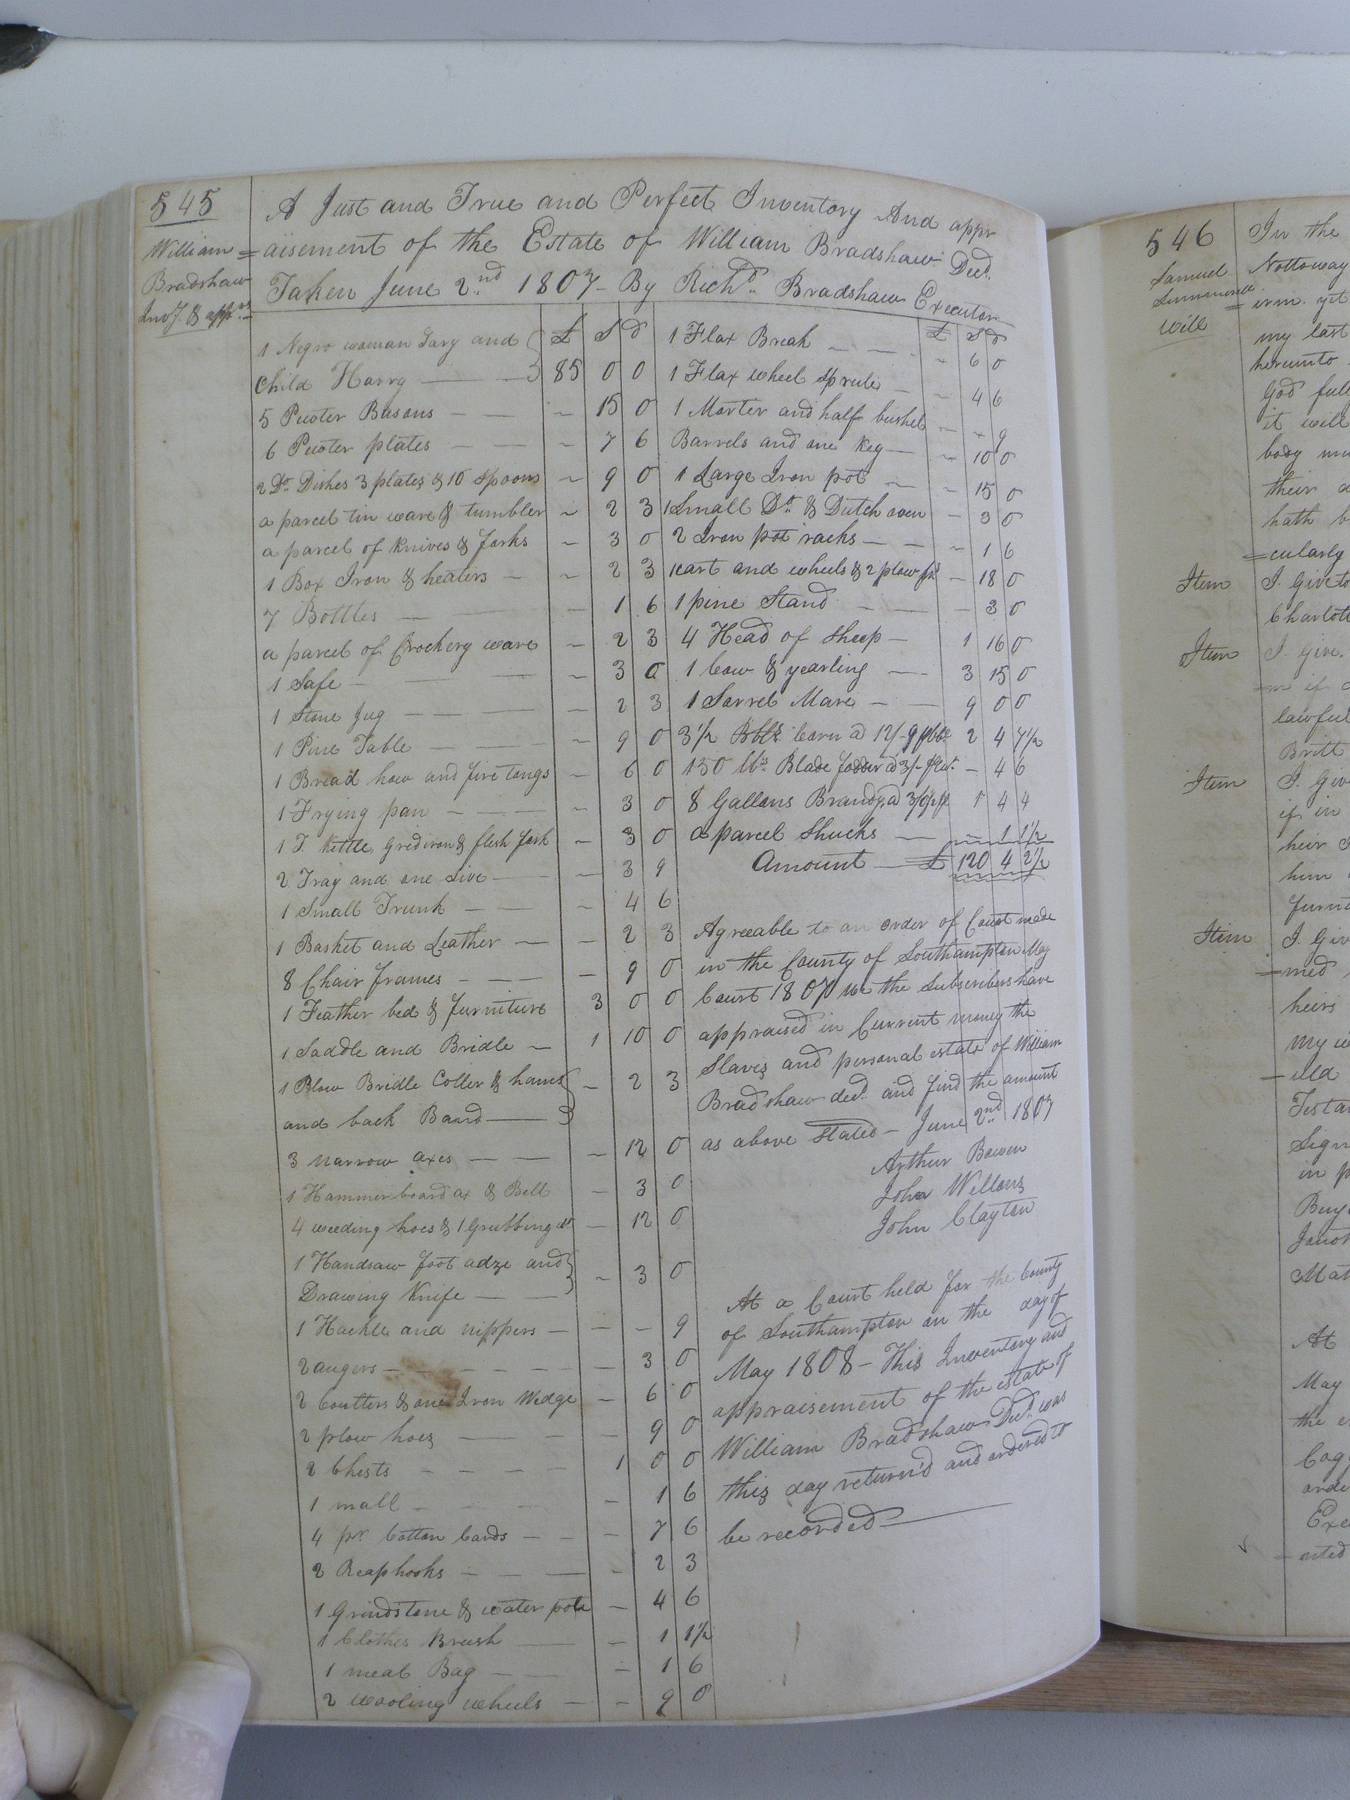 545
William
Bradshaw
Inv.y & app.mt
A Just and True and Perfect Inventory And appr
=aisement of the Estate of William Bradshaw Dec.d
Taken June 2.nd 1807 - By Rich.d Bradshaw Executor
£ S d
1 Negro woman and
Child Harry 85 0 0
5 Pewter Basons - 15 0
6 Pewter plates - 7 6
2 D.o Dishes 3 plates & 10 Spoons - 9 0
a parcel tin ware & tumbler - 2 3
a parcel of Knives & forks - 3 0
1 Box Iron & heaters - 2 3
7 Bottles - 1 6
a parcel of Crockery ware - 2 3
1 Safe - 3 0
1 Stone Jug - 2 3
1 Pine Table - 9 0
1 Bread how and fire tongs - 6 0
1 Frying pan - 3 0
1 T Kettle gridiron & flesh fork - 3 0
2 Tray and one Sive - 3 9
1 Small Trunk - 4 6
1 Basket and Leather - 2 3
8 Chair frames - 9 0
1 Feather bed & furniture 3 0 0
1 Saddle and Bridle 1 10 0
1 Plow Bridle Coller & hames
and back Band - 2 3
3 narrow axes - 12 0
1 Hammer board ax & Bell - 3 0
4 weeding hoes & 1 Grubbing d.o - 12 0
1 Handsaw foot adze and
Drawing Knife - 3 0
1 Hackle and nippers - - 9
2 augers - 3 0
2 Coulters & one Iron Wedge - 6 0
2 plow hoes - 9 0
2 Chests 1 0 0
1 mall - 1 6
4 pr. Cotton Cards - 7 6
2 Reaphooks - 2 3
1 Grindstone & water pots - 4 6
1 Clothes Brush - 1 1½
1 meal Bag - 1 6
2 wooling wheels - 9 0
£ S d
1 Flax Break - 6 0
1 Flax wheel - 4 6
1 Morter and half bushel - - 9
Barrels and one Keg - 10 0
1 Large Iron pot - 15 0
1 Small D.o & Dutch oven - 3 0
2 Iron pot racks - 1 6
1 cart and wheels & 2 plow - 18 0
1 pine Stand - 3 0
4 Head of Sheep 1 16 0
1 Cow & yearling 3 15 0
1 Sorrel Mare 9 0 0
3½ Bbls Corn a 12/9 2 4 7½
150 lbs Blade fodder a 3/- - 4 6
8 Gallons Brandy a 1 4 4
a parcel Shucks - 1 1½
Amount £ 120 4 2½
Agreeable to an order of Court made
in the County of Southampton May
Court 1807 we the Subscribers have
appraised in Current money the
Slaves and personal estate of William
Bradshaw dec.d and find the amount
as above Stated - June 2nd 1807
Arthur Bowen
John Wellons
John Clayton
At a Court held for the County
of Southampton on the day of
May 1808 - This Inventory and
appraisement of the estate of
William Bradshaw Dec.d was
this day return'd and ordered to
be recorded
546
Samuel
will
In the
Nottoway
my last
hereunto
God
it will
body
their
hath
=cularly
Item
I Give to
Charlot
Item
I give
lawful
Britt
Item
I Give
if in
heir
him
Item
I Giv
heirs
in
At
May
the